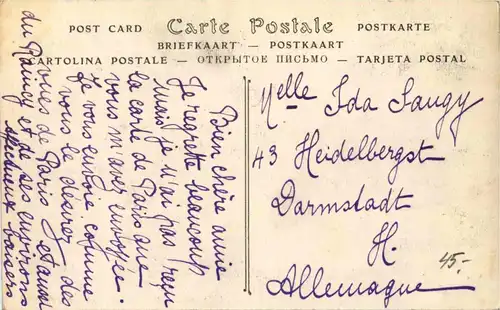 POST CARD Carte Postale POSTKARTE
BRIEFKAART — POSTKAART
CARTOLINA POSTALE — ОТКРЫТОЕ ПИСЬМО — TARJETA POSTAL
Bien chère amie
Je regrette beaucoup
mais je n'ai pas reçu
la carte de Paris que
vous m'avez envoyée.
Je vous envoie comme
vous le désirez des
vues de Paris et aussi
du Raincy et de ses environs
baisers
Melle Ida Saugy
43 Heidelbergst
Darmstadt
H.
Allemagne
45.-